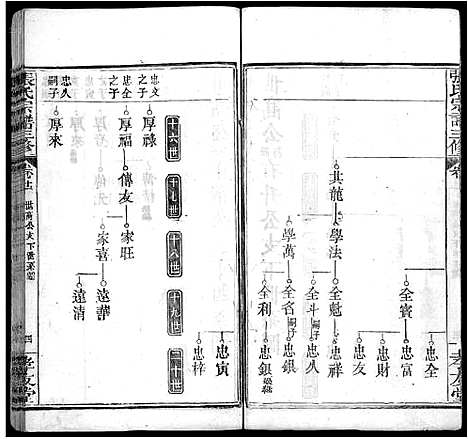 張氏宗譜三修
卷
孝友堂
全賓
忠全
忠富
忠財
忠友
其龍
學法
全魁
忠祥
全斗
嗣子
忠久
學萬
全名
忠銀
全利
嗣子
忠銀
忠寅
忠梓
十六世
十七世
十八世
十九世
二十世
忠文之子
厚祿
忠全之子
厚福
傳友
家旺
家喜
遠華
遠清
忠久嗣子
厚來
張氏宗譜三修
世萬公支下世系
四
孝友堂